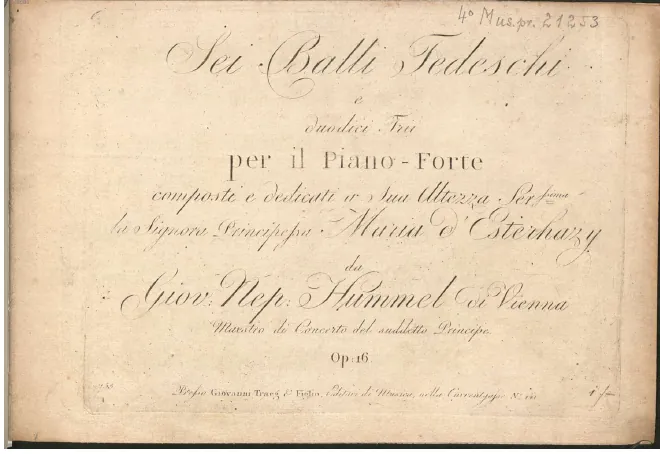 4º Mus.pr. 21253
Sei Balli Tedeschi
e
duodici Trii
per il Piano-Forte
composti e dedicati a Sua Altezza Ser:ssima
la Signora Principessa Maria d'Esterhazy
da
Giov: Nep: Hummel di Vienna
Maestro di Concerto del suddetto Principe
Op: 16
Presso Giovanni Traeg & Figlio, Editori di Musica, nella